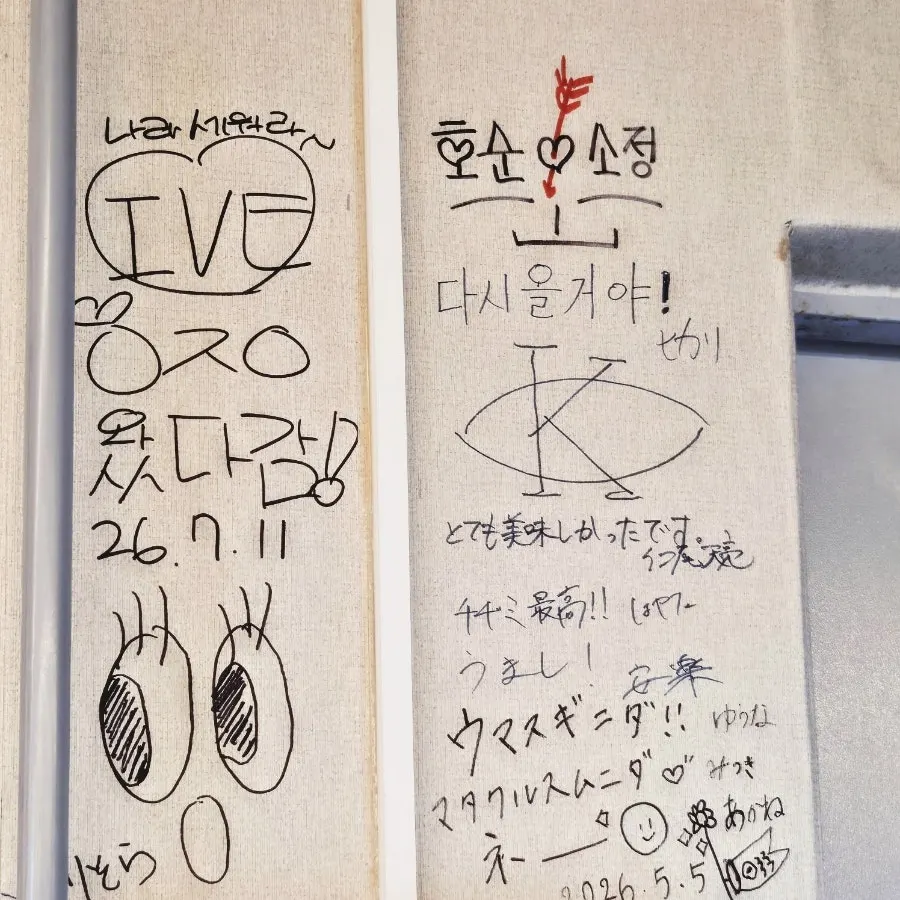 나라세워라~
IVE
ㅇㅈㅇ
왔다감!
26.7.11
호순♡소정
다시올거야!
ヒカリ
K
とても美味しかったです。
チヂミ最高!!
うまし! 安楽
ウマスギニダ!! ゆうな
マタクルスムニダ♡ みつき
ネー あかね
2026.5.5